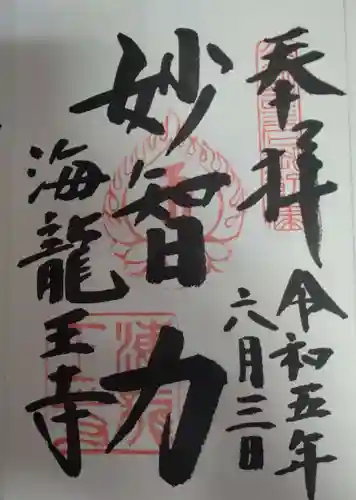 奉拝
令初五年
六月三日
妙智力
海龍王寺